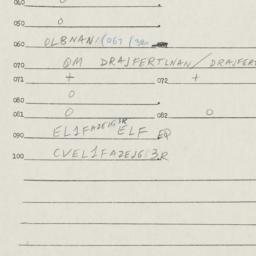 040 0
050 0
060 OLBNAN/(061/
070 QM DRAJFERTLNAN/DRAJFERT
071 + 072 +
080 0
081 0 082 0
090 EL1FAZEJGJR ELF EQ
100 CVEL1FAZEJGJ3R